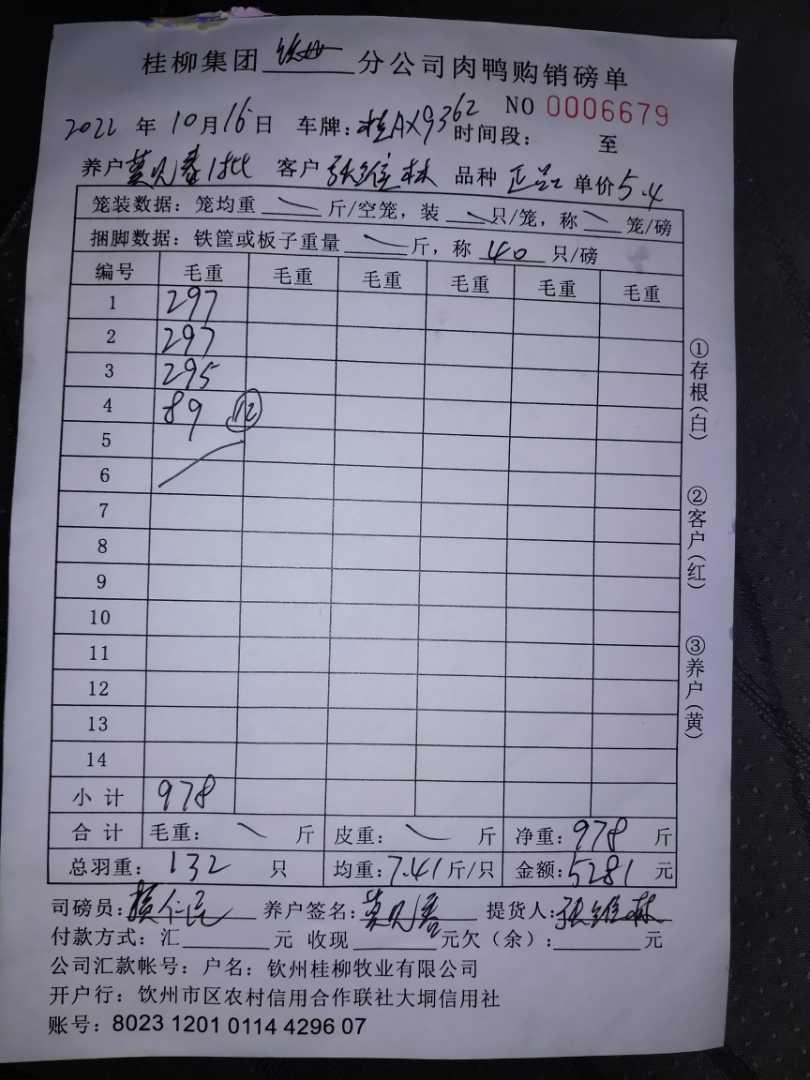 桂柳集团 钦州 分公司肉鸭购销磅单
NO 0006679
2022 年 10 月 16 日 车牌：桂AX9362 时间段： 至
养户 1批 客户 张维林 品种 正品 单价 5.4
笼装数据：笼均重 斤/空笼，装 只/笼，称 笼/磅
捆脚数据：铁筐或板子重量 斤，称 40 只/磅
编号 毛重 毛重 毛重 毛重 毛重 毛重
1 297
2 297
3 295
4 89 12
5
6
7
8
9
10
11
12
13
14
小计 978
合计 毛重： 斤 皮重： 斤 净重：978 斤
总羽重：132 只 均重：7.41 斤/只 金额：5281 元
司磅员： 养户签名： 提货人：张维林
付款方式：汇 元 收现 元欠（余）： 元
公司汇款帐号：户名：钦州桂柳牧业有限公司
开户行：钦州市区农村信用合作联社大垌信用社
账号：8023 1201 0114 4296 07
①存根（白）
②客户（红）
③养户（黄）